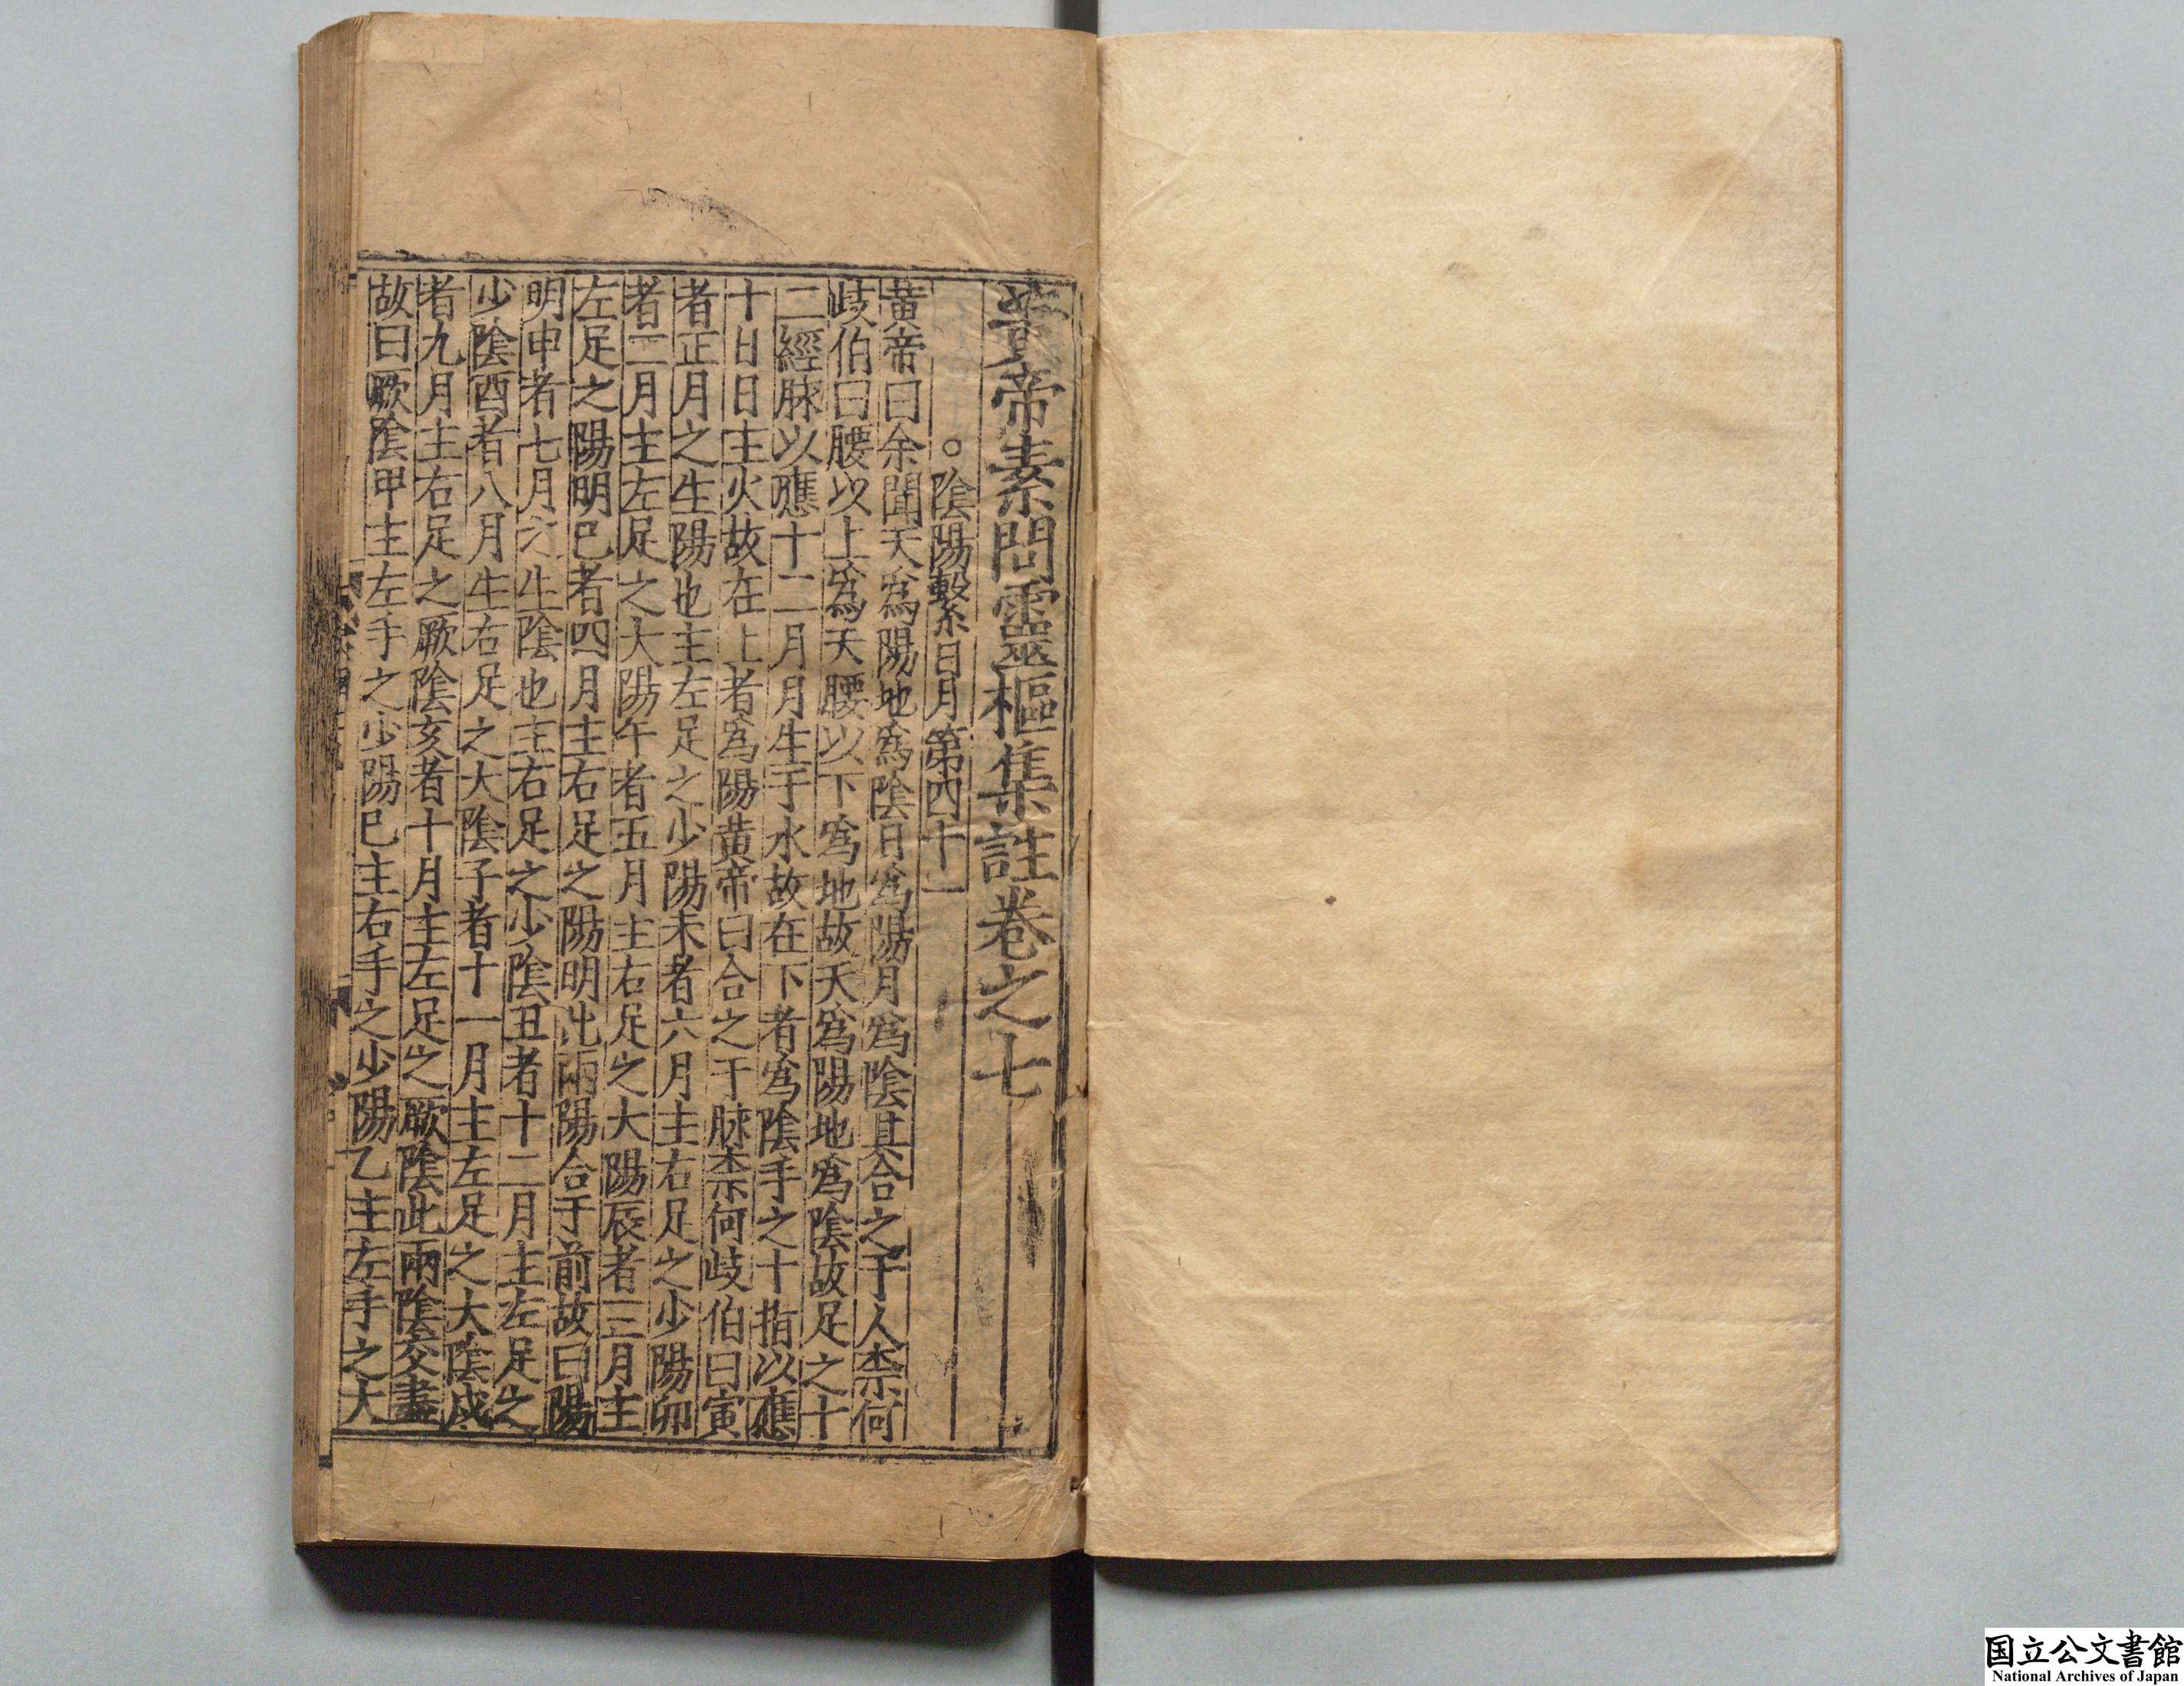 黃帝素問靈樞集註卷之七
○陰陽繫日月第四十一
黃帝曰余聞天爲陽地爲陰日爲陽月爲陰其合之于人柰何
歧伯曰腰以上爲天腰以下爲地故天爲陽地爲陰故足之十
二經脉以應十二月月生于水故在下者爲陰手之十指以應
十日日主火故在上者爲陽黃帝曰合之于脉柰何歧伯曰寅
者正月之生陽也主左足之少陽未者六月主右足之少陽卯
者二月主左足之大陽午者五月主右足之大陽辰者三月主
左足之陽明巳者四月主右足之陽明此兩陽合于前故曰陽
明申者七月之生陰也主右足之少陰丑者十二月主左足之
少陰酉者八月主右足之大陰子者十一月主左足之大陰戌
者九月主右足之厥陰亥者十月主左足之厥陰此兩陰交盡
故曰厥陰甲主左手之少陽巳主右手之少陽乙主左手之大
国立公文書館
National Archives of Japan